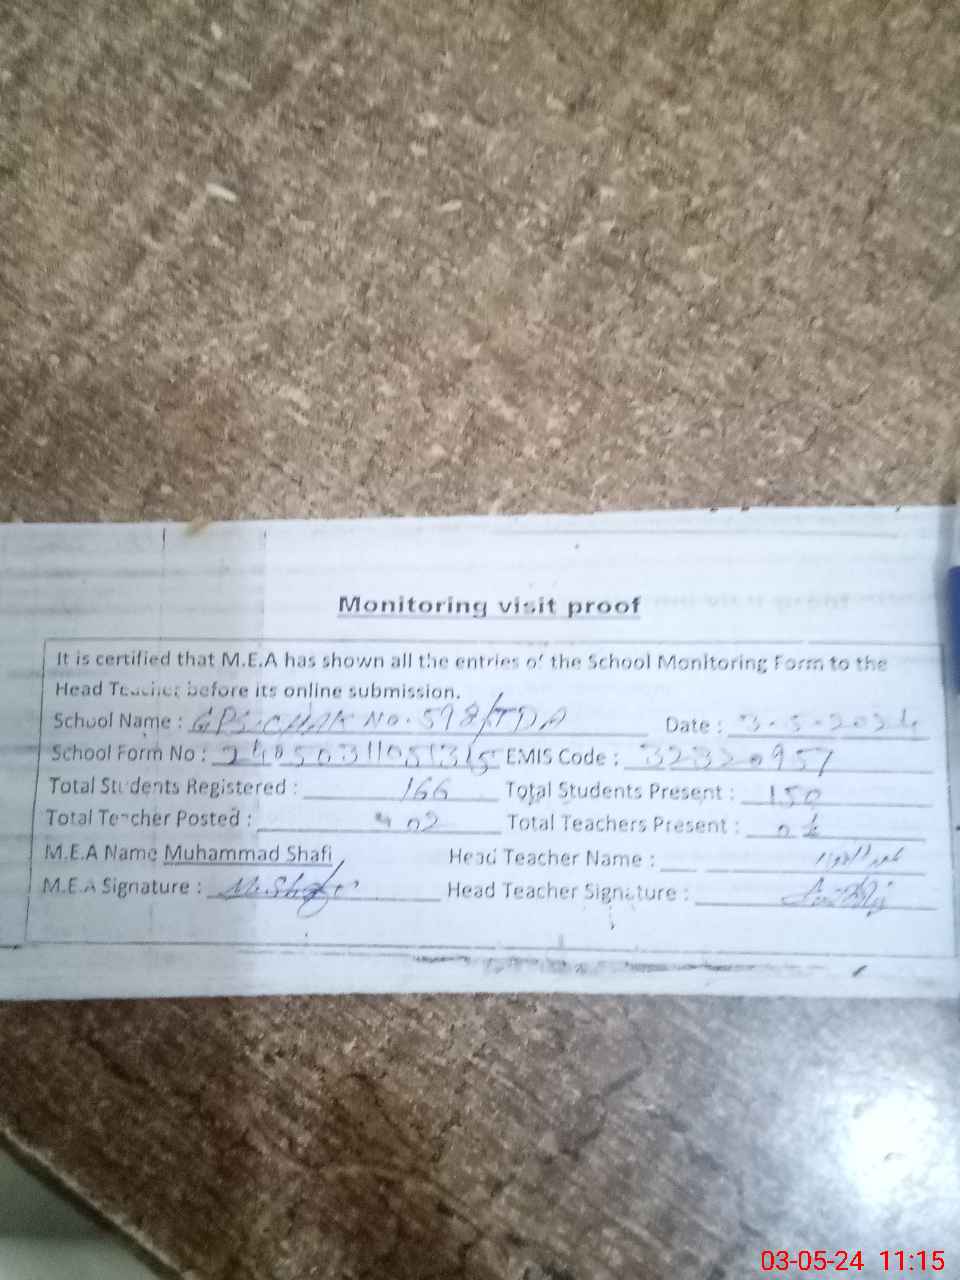 Monitoring visit proof
It is certified that M.E.A has shown all the entries of the School Monitoring Form to the
Head Teacher before its online submission.
School Name : GPS. CHAK No. 598/TDA Date : 3-5-2024
School Form No : EMIS Code : 32320957
Total Students Registered : 166 Total Students Present : 150
Total Teacher Posted : 02 Total Teachers Present :
M.E.A Name Muhammad Shafi Head Teacher Name :
M.E.A Signature : Head Teacher Signature :
03-05-24 11:15